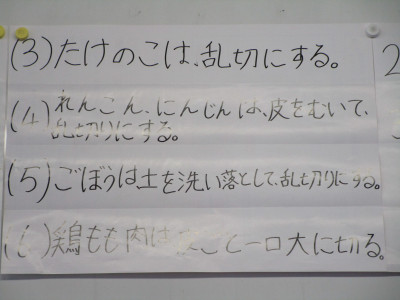 (3)たけのこは、乱切にする。
(4)れんこん、にんじんは、皮をむいて、
乱切りにする。
(5)ごぼうは土を洗い落として、乱切りにする。
鶏もも肉は 一口大に切る。
2